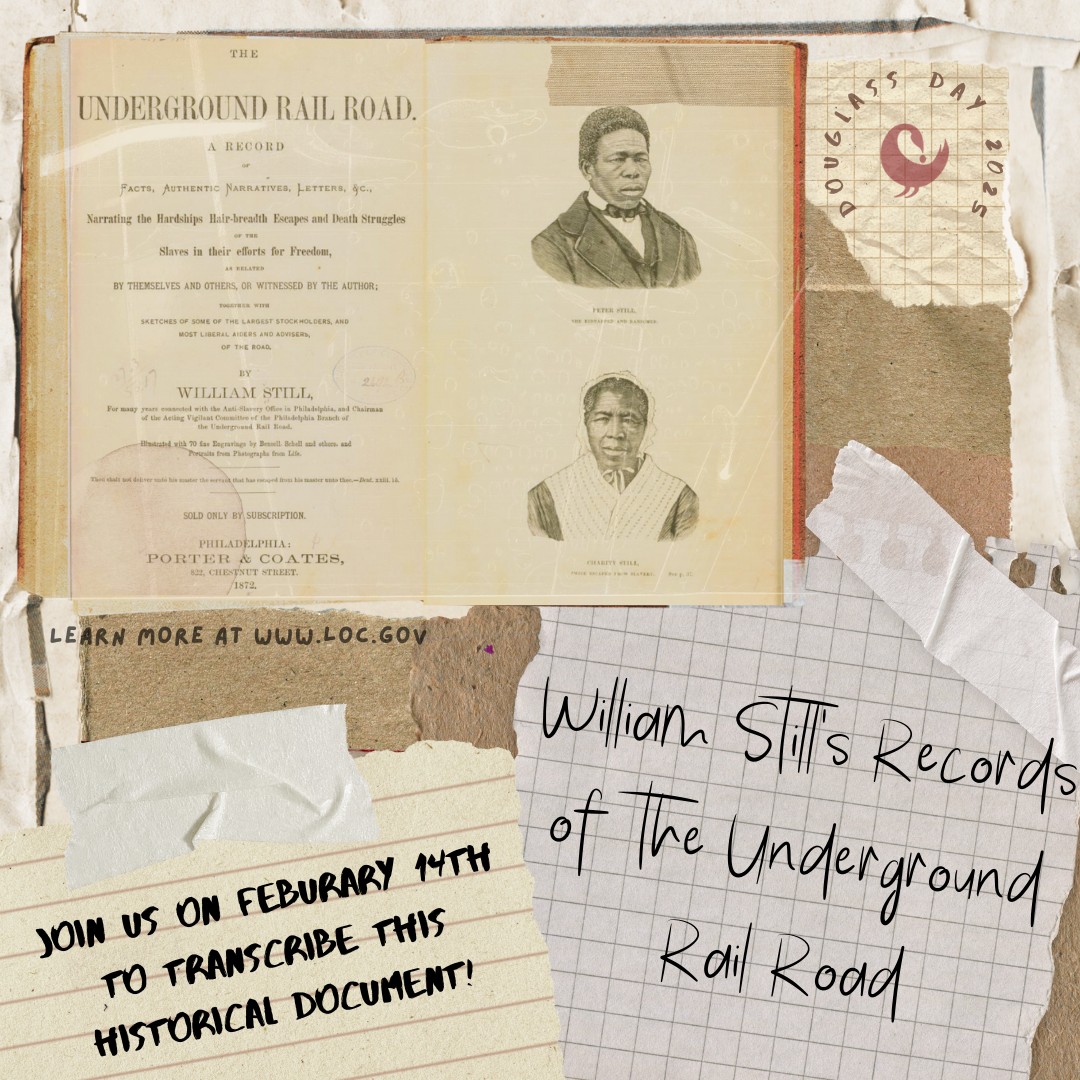 THE
UNDERGROUND RAIL ROAD.
A RECORD
OF
FACTS, AUTHENTIC NARRATIVES, LETTERS, &C.,
Narrating the Hardships Hair-breadth Escapes and Death Struggles
OF THE
Slaves in their efforts for Freedom,
AS RELATED
BY THEMSELVES AND OTHERS, OR WITNESSED BY THE AUTHOR;
TOGETHER WITH
SKETCHES OF SOME OF THE LARGEST STOCKHOLDERS, AND
MOST LIBERAL AIDERS AND ADVISERS,
OF THE ROAD.
BY
WILLIAM STILL,
For many years connected with the Anti-Slavery Office in Philadelphia, and Chairman
of the Acting Vigilant Committee of the Philadelphia Branch of
the Underground Rail Road.
Illustrated with 70 fine Engravings by Bensell, Schell and others, and
Portraits from Photographs from Life.
Thou shalt not deliver unto his master the servant that has escaped from his master unto thee.—Deut. xxiii. 15.
SOLD ONLY BY SUBSCRIPTION.
PHILADELPHIA:
PORTER & COATES,
822, CHESTNUT STREET.
1872.
PETER STILL,
THE KIDNAPPED AND RANSOMED.
CHARITY STILL,
TWICE ESCAPED FROM SLAVERY.
DOUGLASS DAY 2025
LEARN MORE AT WWW.LOC.GOV
William Still's Records
of The Underground
Rail Road
JOIN US ON FEBURARY 14TH
TO TRANSCRIBE THIS
HISTORICAL DOCUMENT!